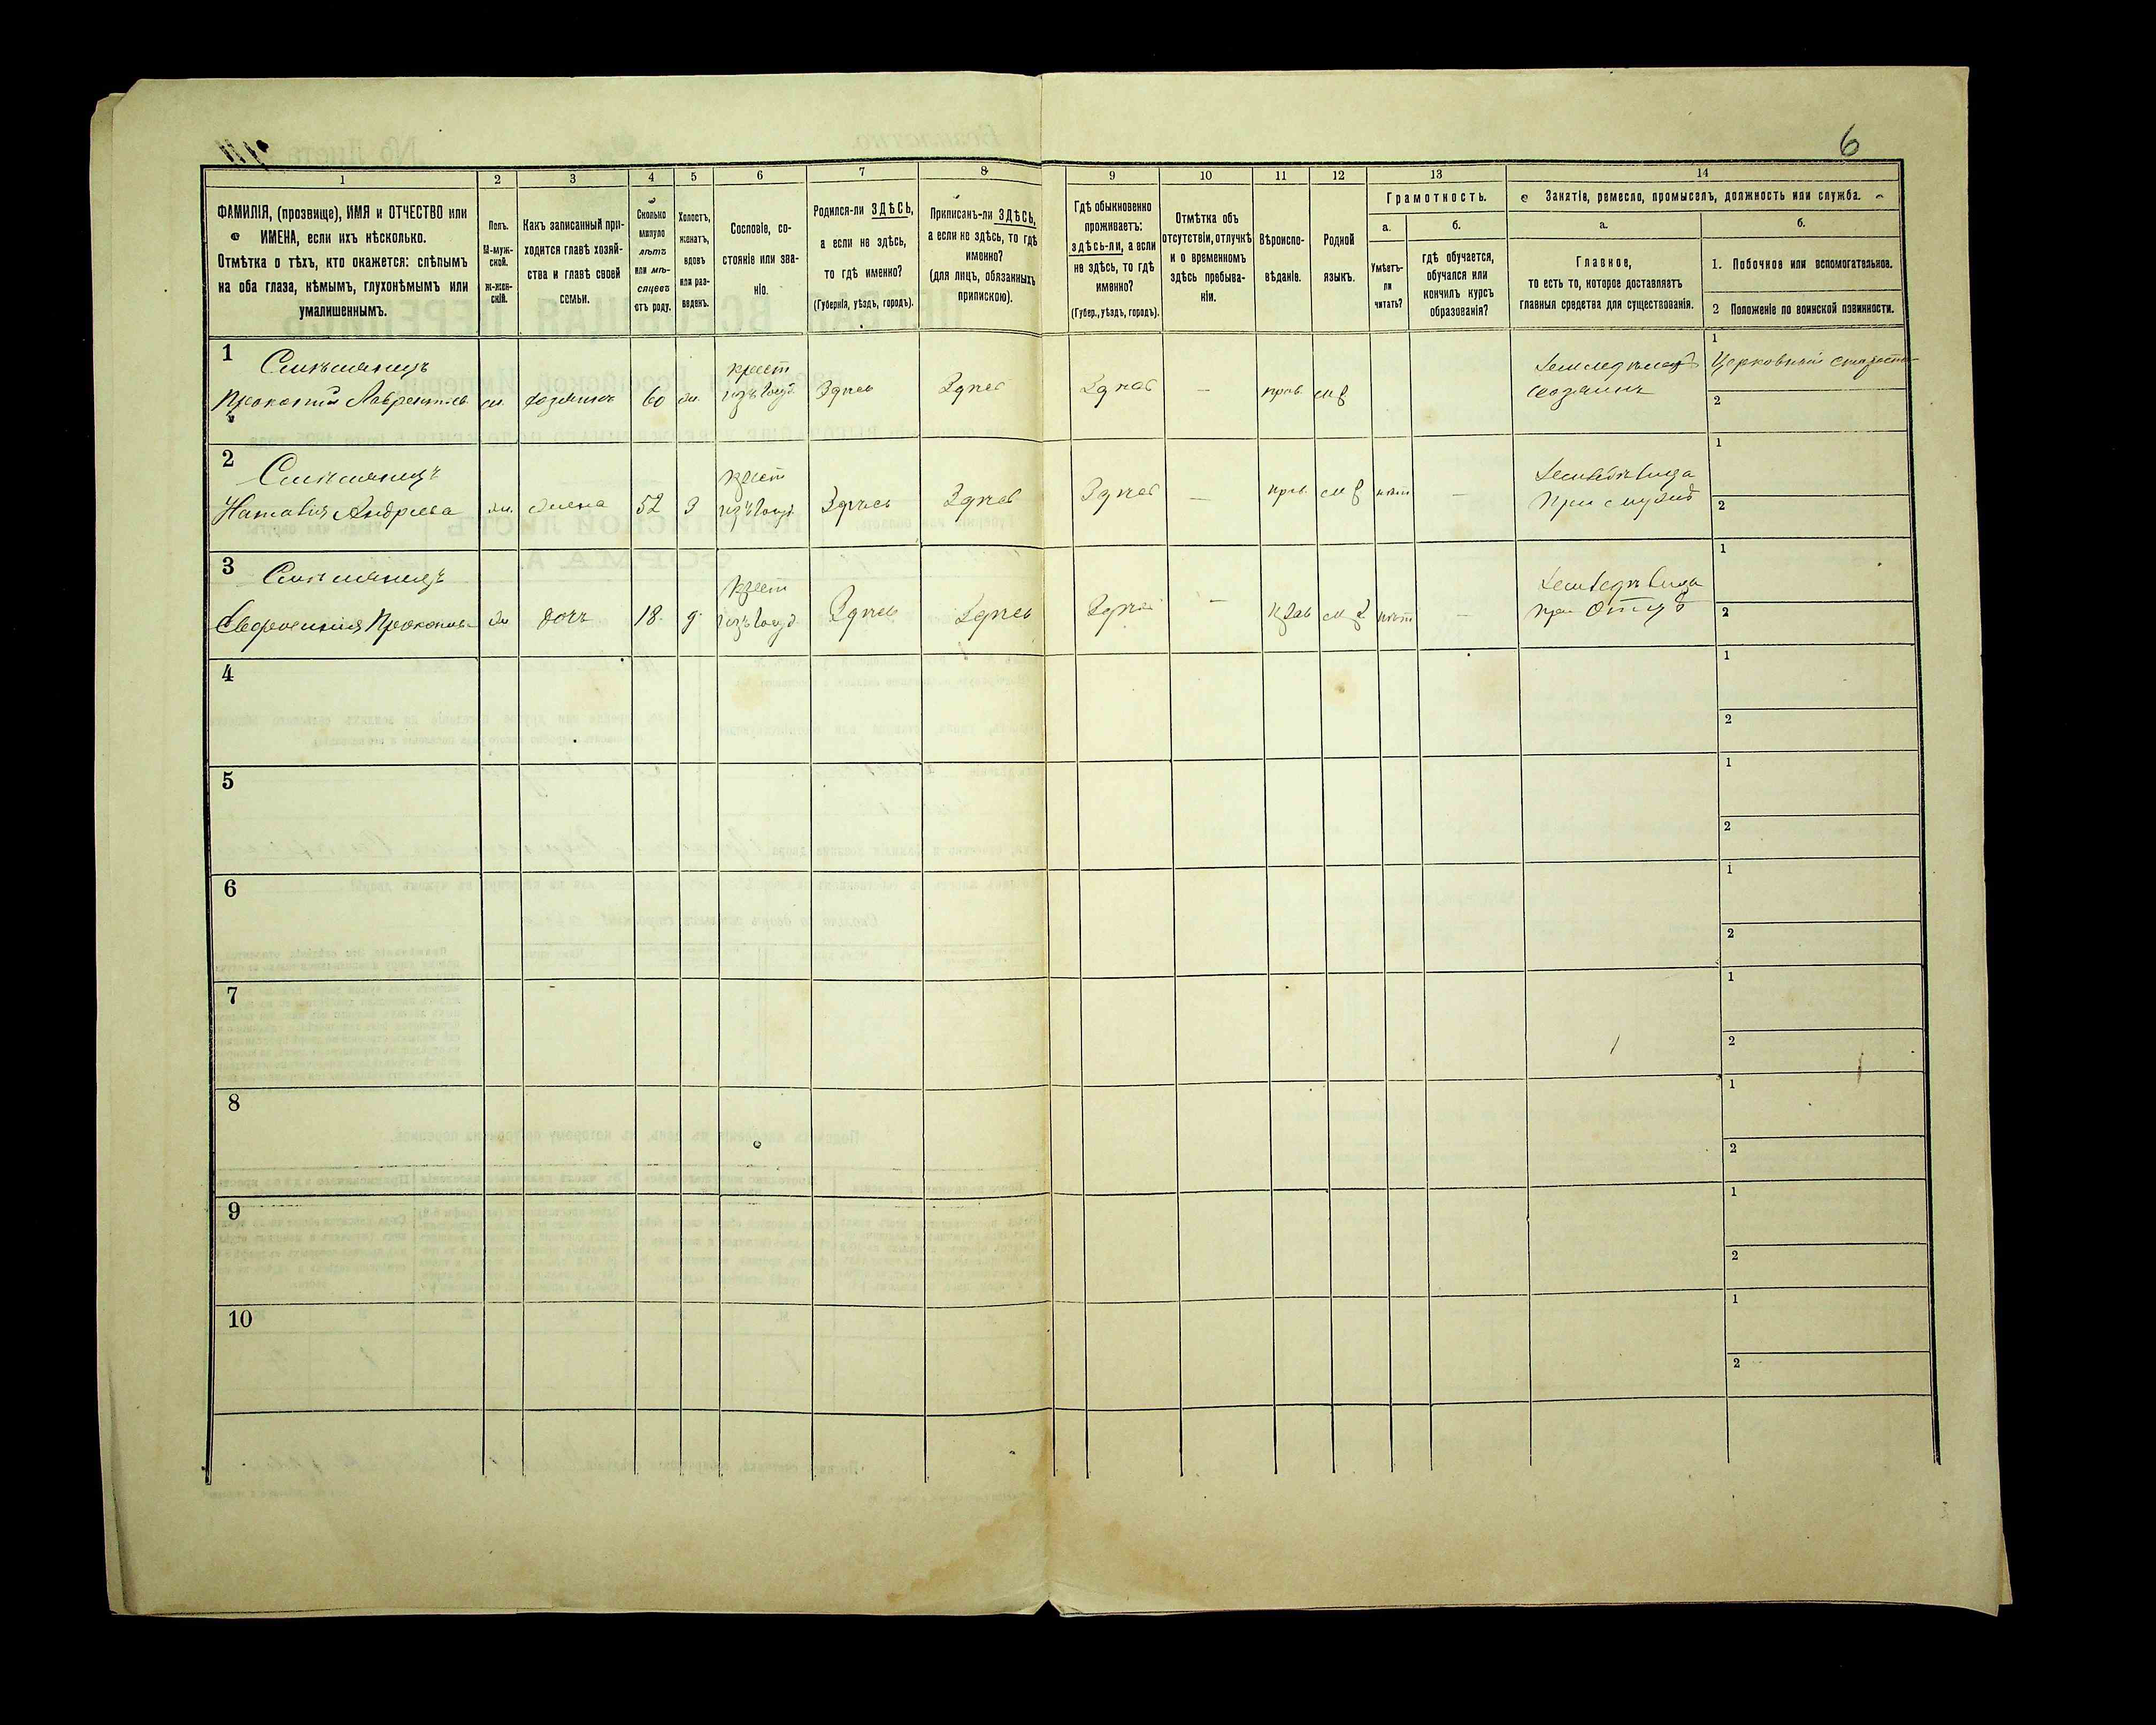 6
1 2 3 4 5 6 7 8 9 10 11 12 13 14
ФАМИЛІЯ, (прозвище), ИМЯ и ОТЧЕСТВО или
ИМЕНА, если ихъ нѣсколько.
Отмѣтка о тѣхъ, кто окажется: слѣпымъ
на оба глаза, нѣмымъ, глухонѣмымъ или
умалишеннымъ.
Полъ.
М-муж-
ской.
Ж-жен-
скій.
Какъ записанный при-
ходится главѣ хозяй-
ства и главѣ своей
семьи.
Сколько
минуло
лѣтъ
или мѣ-
сяцевъ
отъ роду.
Холостъ,
женатъ,
вдовъ
или раз-
веденъ.
Сословіе, со-
стояніе или зва-
ніе.
Родился-ли ЗДѢСЬ,
а если не здѣсь,
то гдѣ именно?
(Губернія, уѣздъ, городъ).
Приписанъ-ли ЗДѢСЬ,
а если не здѣсь, то гдѣ
именно?
(для лицъ, обязанныхъ
припискою).
Гдѣ обыкновенно
проживаетъ:
здѣсь-ли, а если
не здѣсь, то гдѣ
именно?
(Губер., уѣздъ, городъ).
Отмѣтка объ
отсутствіи, отлучкѣ
и о временномъ
здѣсь пребыва-
ніи.
Вѣроиспо-
вѣданіе.
Родной
языкъ.
Грамотность.
а.
Умѣетъ-
ли
читать?
б.
гдѣ обучается,
обучался или
кончилъ курсъ
образованія?
Занятіе, ремесло, промыселъ, должность или служба.
а.
Главное,
то есть то, которое доставляетъ
главныя средства для существованія.
б.
1. Побочное или вспомогательное.
2 Положеніе по воинской повинности.
1
Прокопій Лаврентіев
м. хозяинъ 60 ж.
крест
Здѣсь Здѣсь Здѣсь — прав.
хозяинъ
1 Церковный староста
2
2
Наталія Андреева
ж. жена 52 З
крест
Здѣсь Здѣсь Здѣсь — прав. нѣт —
при мужѣ
1
2
3
Прокопов
ж дочь 18. д.
крест
Здѣсь Здѣсь Здѣсь — прав нѣт —
при Отцѣ
1
2
4
1
2
5
1
2
6
1
2
7
1
2
8
1
2
9
1
2
10
1
2